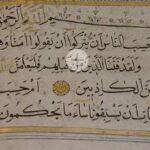 الله الرحمن
حسب الناس ان يتركوا ان يقولوا امنا وهم
ولقد فتنا الذين من قبلهم فليعلمن
الكاذبين ام حسب
ان يسبقونا ساء ما يحكمون